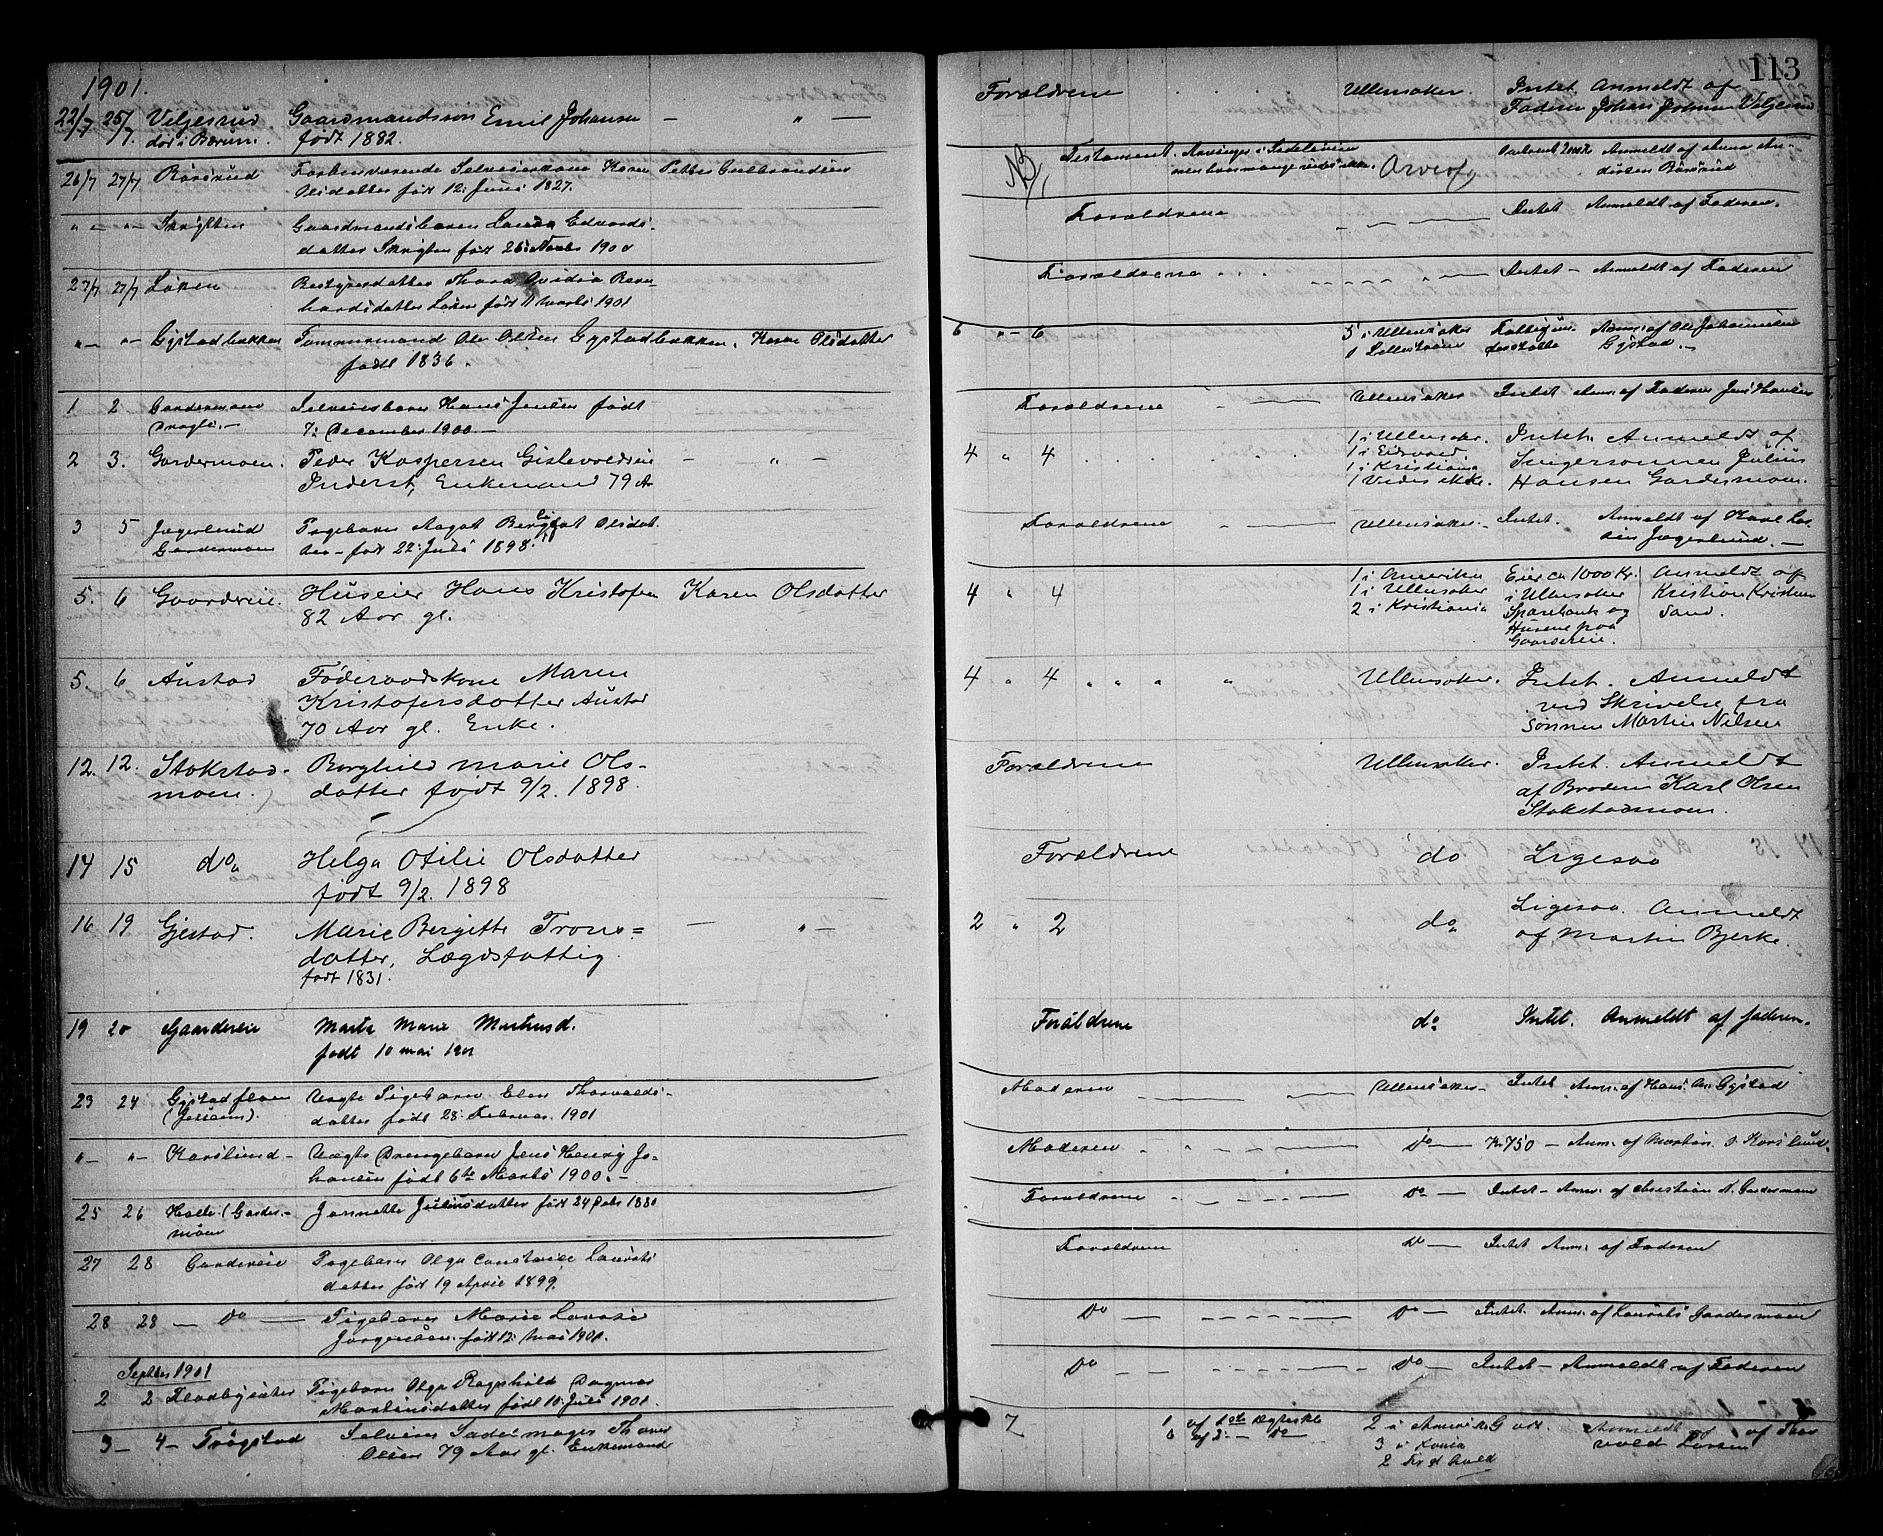 113
1901.
22/7 25/7. Veljesrud Gaardmandssøn Emil Johansen — " — Forældrene Ullensaker. Intet Anmeldt af
død i Bærum. født 1882. Faderen Johan Johnsen Veljesrud
26/7 27/7 Forhenværende Selveierkone Karen Petter Gulbrandsen NB. Testament. Arvinger i Sidelinien Anmeldt af
Olsdatter født 12: Juni 1827.
" — " — Gaardmandsbarn Laura Edvards- Forældrene Intet Anmeldt af Faderen.
datter født 26: Novbr 1900
27/7 27/7 Løken Bestyrerdatter Thora Forældrene Intet — Anmeldt af Faderen
hardsdatter Løken født Marts 1901
" — " — Gystadbakken Tømmermand Ole Olsen Gystadbakken. Karen Olsdatter 6 " — 6 5 i Ullensaker Anm: af Ole Johannesen
født 1836. 1 Lillestrøm Gystad. —
1 2 Gardermoen Selveierbarn Hans Jensen født Forældrene — Ullensaker Intet Anm. af Faderen Jens Hansen
7: December 1900. —
2 3. Gardermoen. Peder Kaspersen Gislevoldeie — " — 4 " 4 1 i Ullensaker. Intet. Anmeldt af
Inderst, Enkemand 79 Aar 1 i Eidsvold Svigersønnen Julius
1 i Kristiania Hansen Gardermoen.
1 Vides ikke.
3 5 Jægerlund Pigebarn Aagot Bergliot Olsdat- Forældrene Ullensaker. — Intet. Anmeldt af Karl Lar-
Gardermoen ter — født 22: Juli 1898. sen Jægerlund. —
5. 6 Gaardereie. Huseier Hans Kristofersen Karen Olsdatter 4 " 4 1 i Amerika Eier ca 1000 Kr. Anmeldt af
82 Aar gl. 1 i Ullensaker i Ullensaker Kristian Kristensen
2 i Kristiania Sparebank og Sand.
Husene paa
Gaardereie.
5. 6 Austad Føderaadskone Maren 4 " 4 " " " " Ullensaker. Intet. Anmeldt
Kristofersdatter Austad ved Skrivelse fra
70 Aar gl. Enke. Sønnen Martin Nilsen
12. 12. Stokstad- Borghild Marie Ols- Forældrene Ullensaker. Intet. Anmeldt
moen. datter født 9/2. 1898. af Broderen Karl Olsen
Stokstadmoen.
14 15 do Helga Otilie Olsdatter Forældrene do Ligesaa
født 9/2. 1898
16 19 Gjestad. Marie Birgitte Trons= — " — 2 " 2 do Ligesaa. Anmeldt
datter, Lægdsfattig af Martin Bjerke.
født 1831.
19 20 Gaardereie Marta Marie Martinsd. Forældrene do Intet. Anmeldt af faderen.
født 10 mai 1901
23 24 Gystad Uægte Pigebarn Elen Thorvalds- Moderen Ullensaker — Intet Anm. af Hans An. Gystad
(Jessheim). datter født 28: Februar. 1901
" — " — Karslund — Uægte Drengebarn Jens Henry Jo- Moderen do — Kr 750 — Anm. af Martin O. Karslund.
hansen født 6te Marts 1900. —
25 26 Holte (Garder- Jannette Juliusdatter født 24 Febr 1880 Forældrene do — Intet — Anm. af Christian N. Gardermoen
moen
27 28 Gardereie Pigebarn Olga Constance Laurits- Forældrene do — Intet Anm. af Faderen
datter født 19 April 1899.
28 28 — do — Pigebarn Marie Lovise do — do — Intet. Anm. af Laurits Gardermoen
Jørgensen. født 12: Mai 1901.
Septbr 1901
2 2 Kladbysæter Pigebarn Olga Ragnhild Dagmar do — do — Intet — Anmeldt af Faderen
Martinsdatter født 10: Juli 1901.
3 — 4 — Trøgstad Selveier Sadelmager Thover 7 1 af 1ste Ægteskb 2 i Amerika Godt. Anmeldt af Thor
Olsen 79 Aar gl. Enkemand 6 af 2: — do 3 i vald Larsen
2